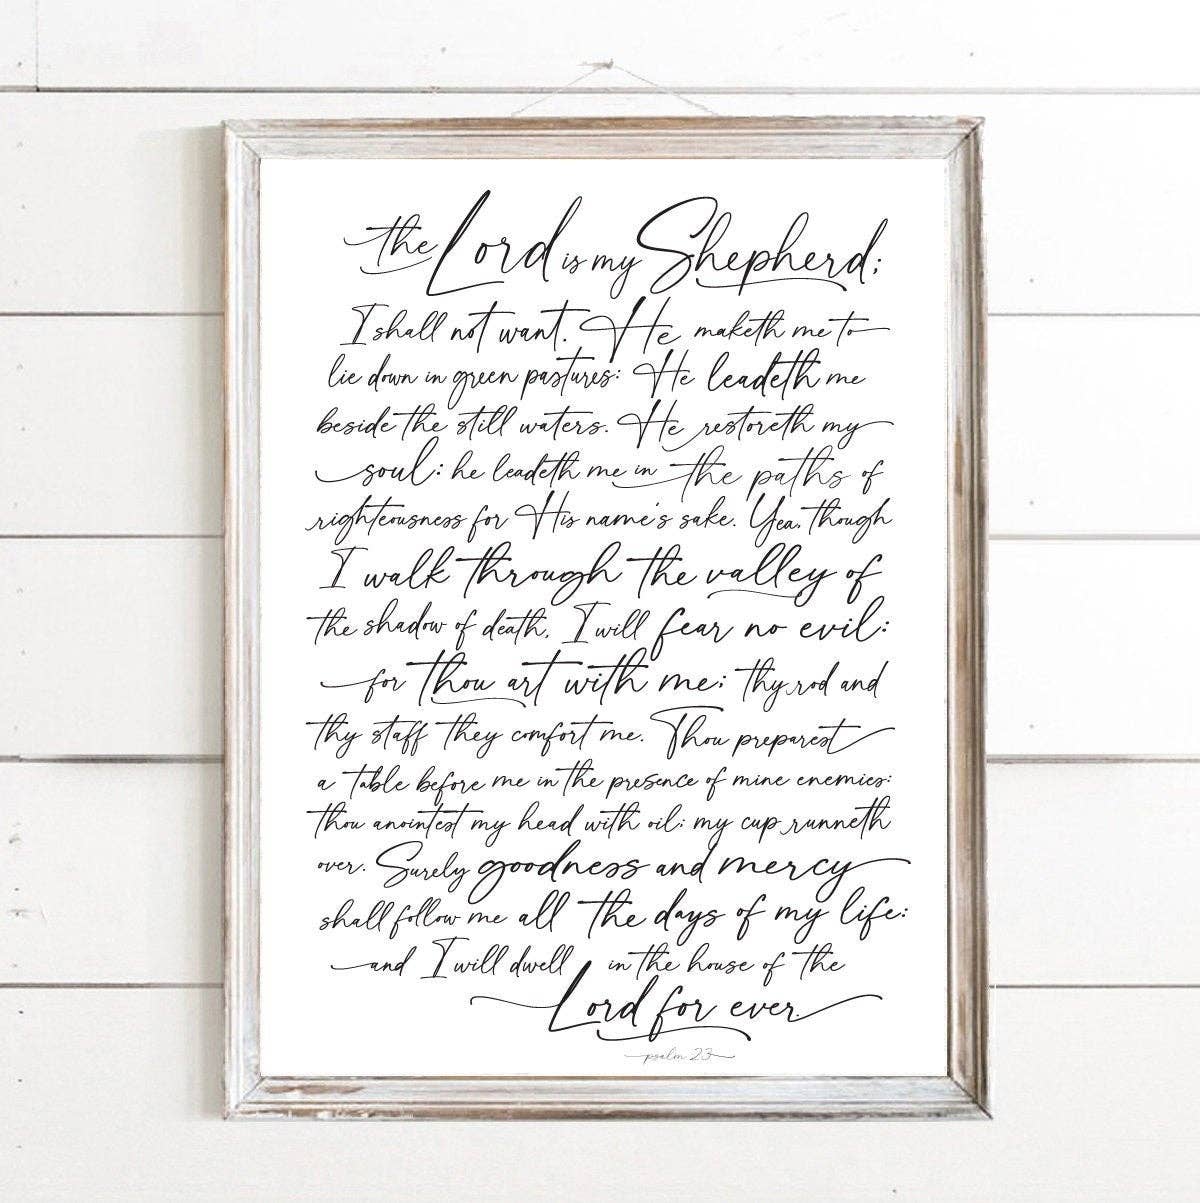 the Lord is my Shepherd;
I shall not want. He maketh me to
lie down in green pastures: He leadeth me
beside the still waters. He restoreth my
soul: he leadeth me in the paths of
righteousness for His name's sake. Yea, though
I walk through the valley of
the shadow of death, I will fear no evil:
for thou art with me; thy rod and
thy staff they comfort me. Thou preparest
a table before me in the presence of mine enemies:
thou anointest my head with oil; my cup runneth
over. Surely goodness and mercy
shall follow me all the days of my life:
and I will dwell in the house of the
Lord for ever.
psalm 23